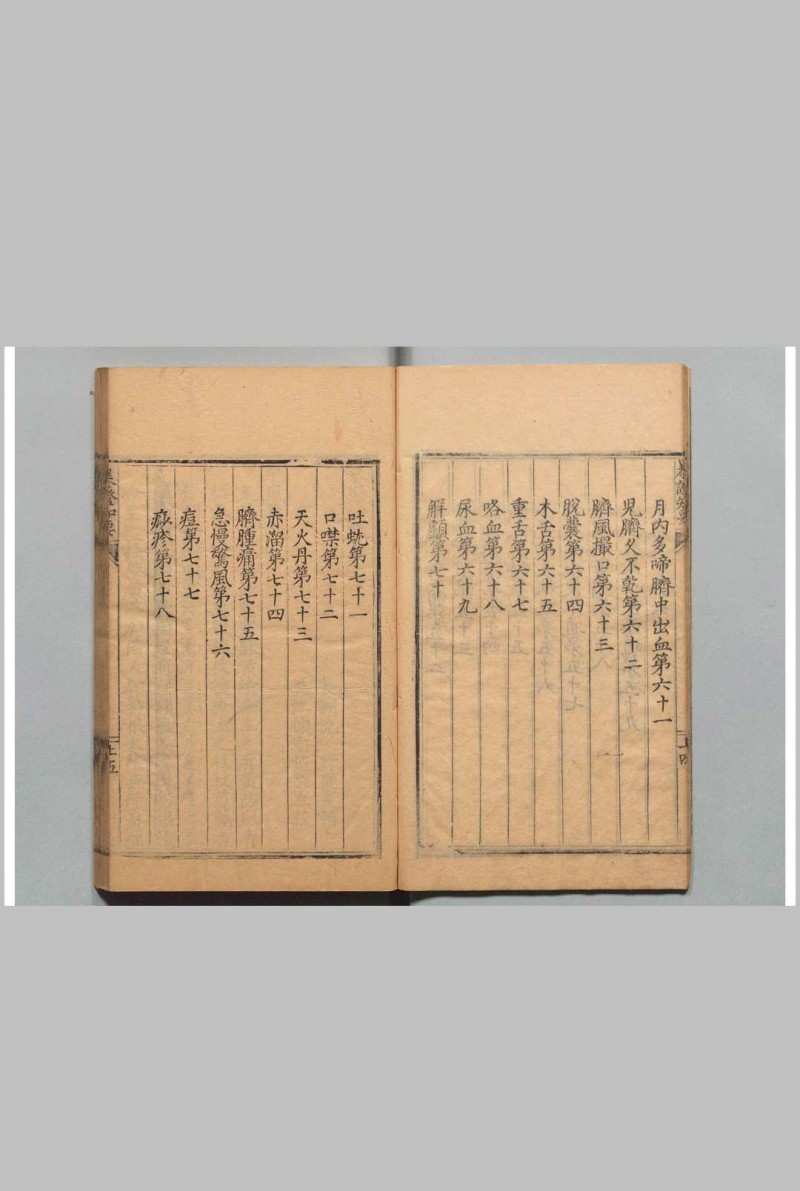 月內多啼臍中出血第六十一
児臍久不乾第六十二
臍風撮口第六十三
脫囊第六十四
木舌第六十五
重舌第六十七
咯血第六十八
尿血第六十九
解顱第七十
吐蚘第七十一
口噤第七十二
天火丹第七十三
赤溜第七十四
臍腫痛第七十五
急慢驚風第七十六
痘第七十七
㿀疹第七十八
上五